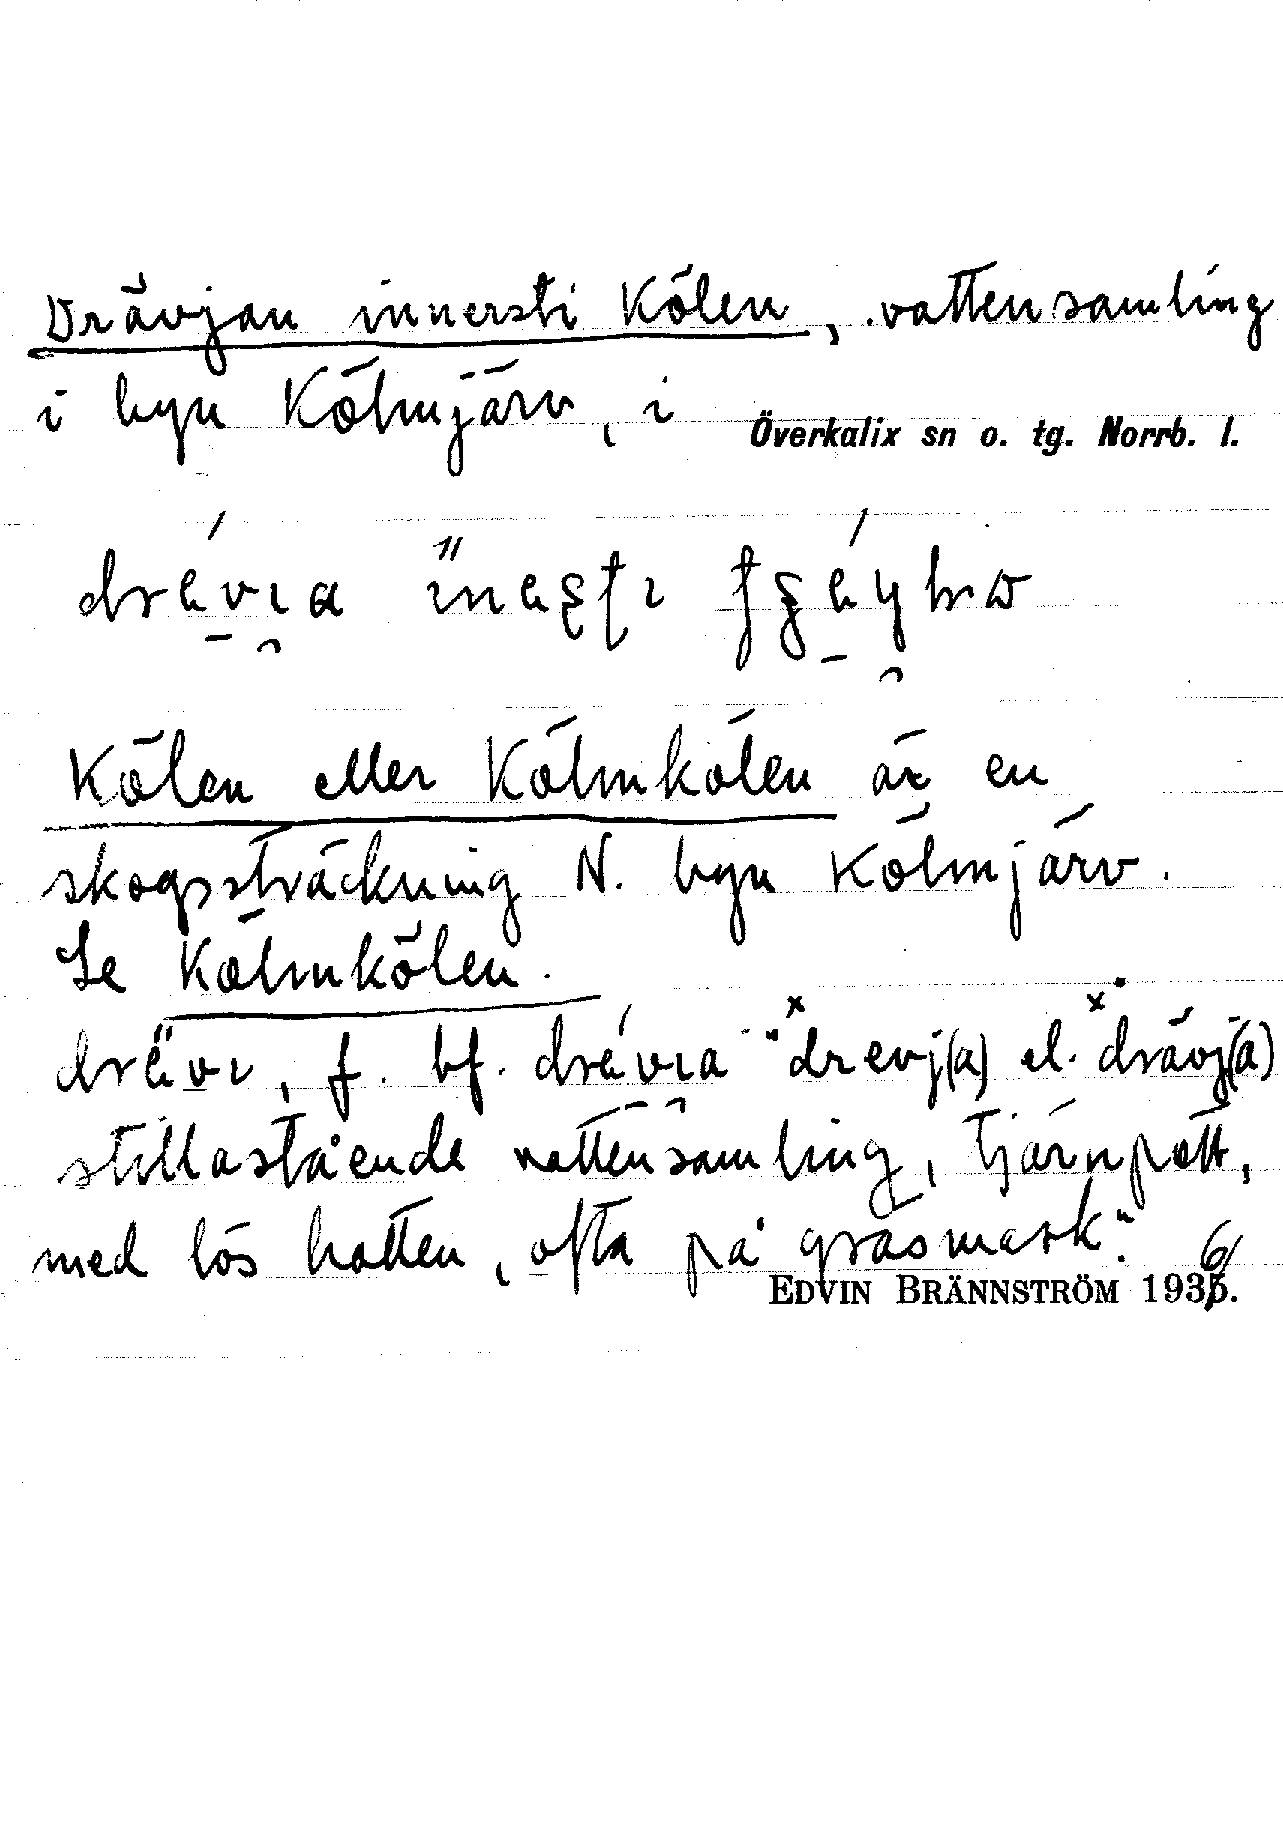 Drävjan innersti Kölen, vattensamling
i byn Kölmjärv, i Överkalix sn o. tg. Norrb. l.
Kölen eller Kölmkölen är en
skogssträckning N. byn Kölmjärv.
Se Kölmkölen.
f. bf. "ˣdrevj(a) el. ˣdrävj(a)
stillastående vattensamling, tjärnpött,
med lös botten, ofta på gräsmark".
EDVIN BRÄNNSTRÖM 1936.